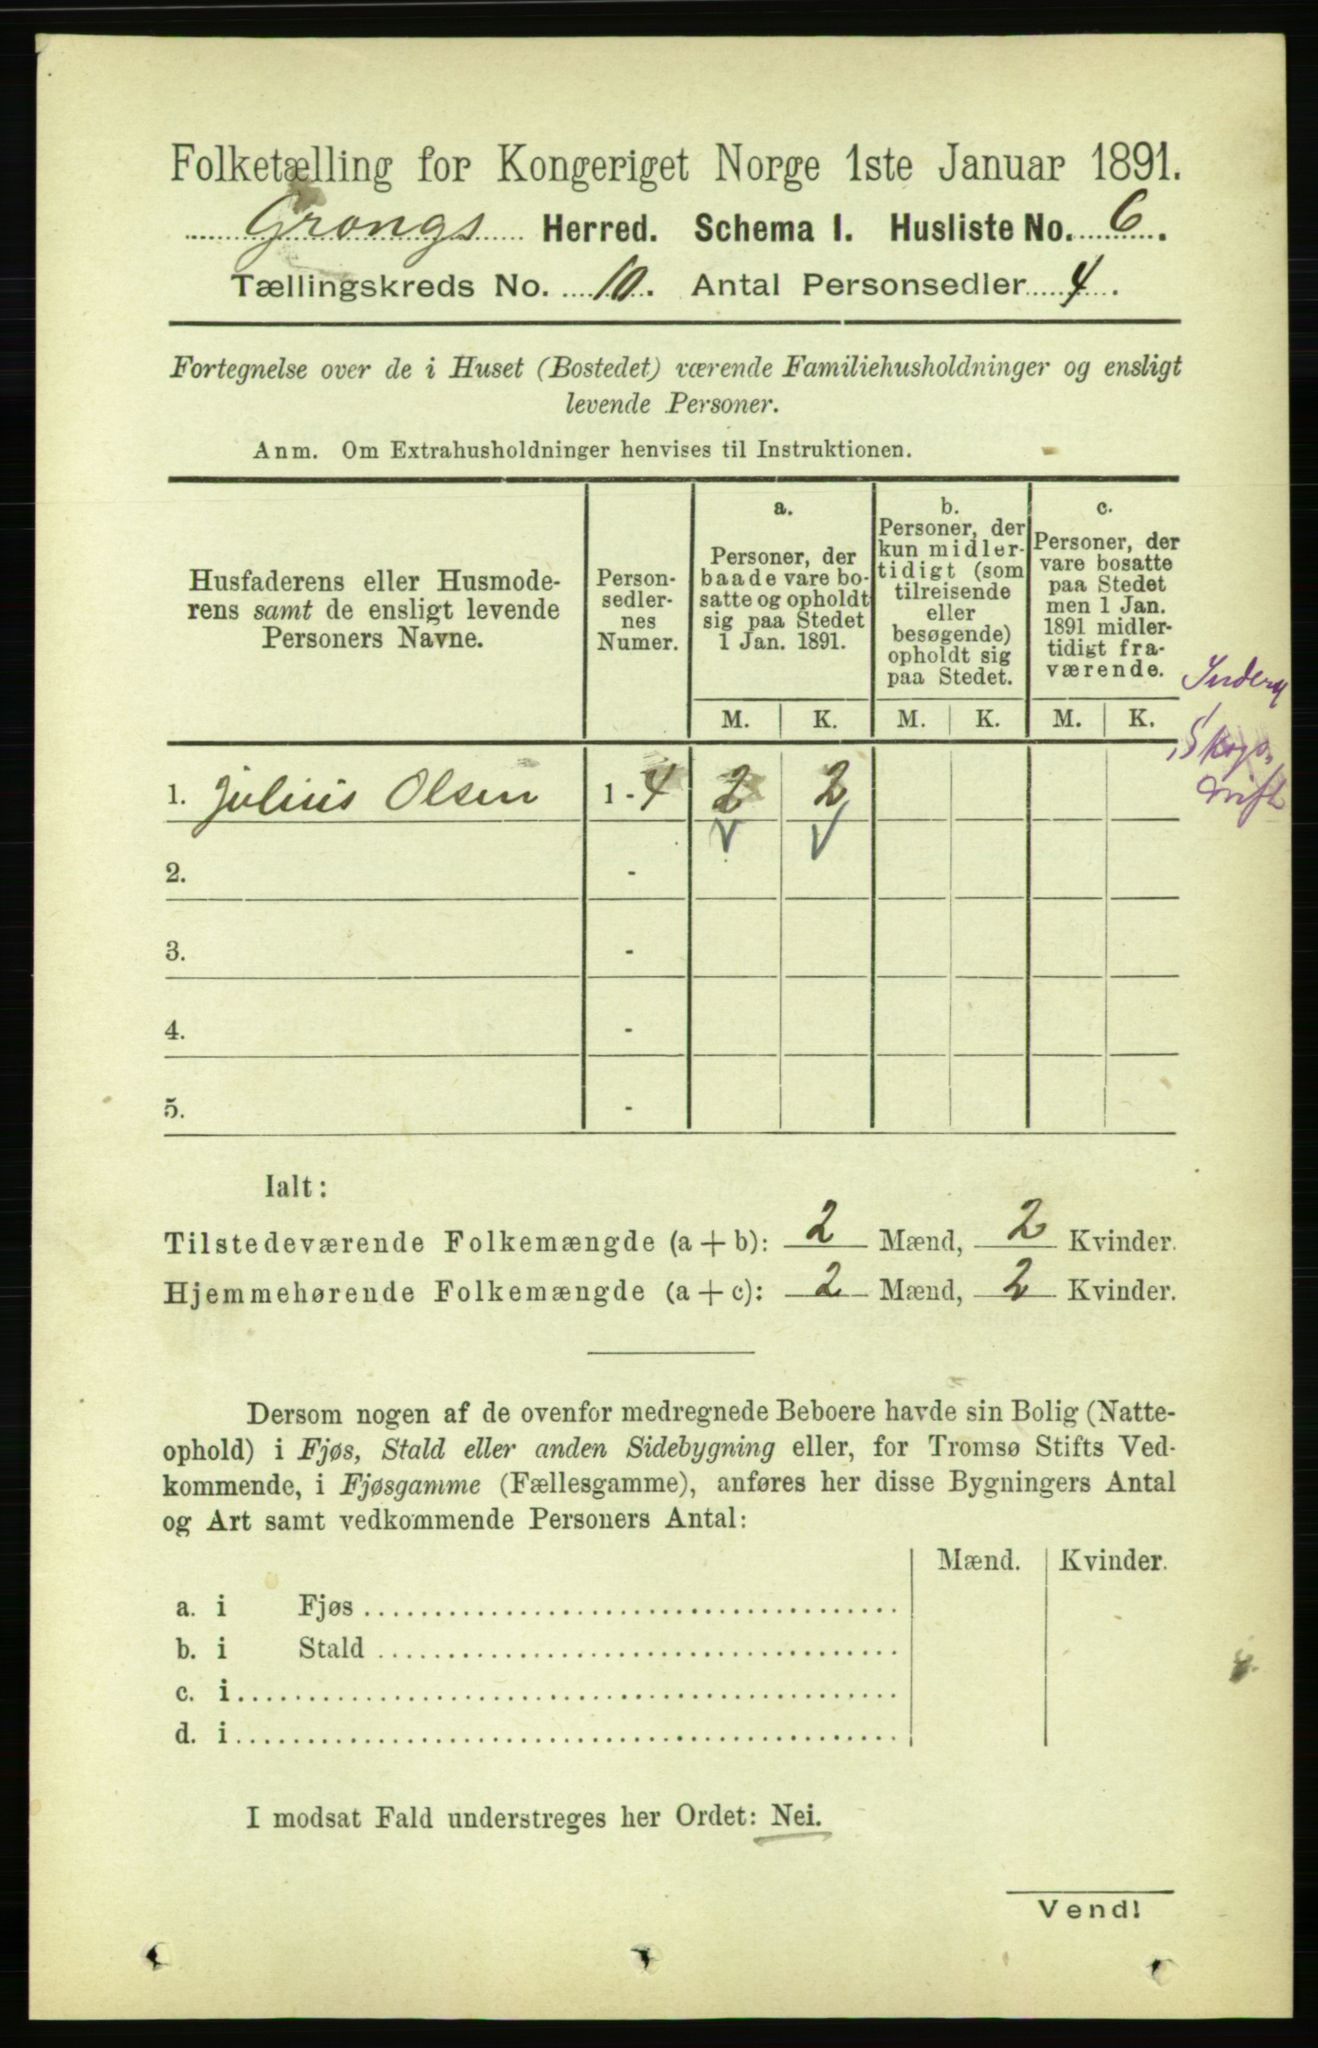 Folketælling for Kongeriget Norge 1ste Januar 1891.
Grongs Herred. Schema I. Husliste No. 6.
Tællingskreds No. 10. Antal Personsedler 4.
Fortegnelse over de i Huset (Bostedet) værende Familiehusholdninger og ensligt
levende Personer.
Anm. Om Extrahusholdninger henvises til Instruktionen.
Husfaderens eller Husmode-
rens samt de ensligt levende
Personers Navne.
Person-
sedler-
nes
Numer.
a.
Personer, der
baade vare bo-
satte og opholdt
sig paa Stedet
1 Jan. 1891.
b.
Personer, der
kun midler-
tidigt (som
tilreisende
eller
besøgende)
opholdt sig
paa Stedet.
c.
Personer, der
vare bosatte
paa Stedet
men 1 Jan.
1891 midler-
tidigt fra-
værende.
M. K. M. K. M. K.
Skogs
drift
1. Julius Olsen 1 - 4 2 2
2. -
3. -
4. -
5. -
Ialt:
Tilstedeværende Folkemængde (a + b): 2 Mænd, 2 Kvinder.
Hjemmehørende Folkemængde (a + c): 2 Mænd, 2 Kvinder.
Dersom nogen af de ovenfor medregnede Beboere havde sin Bolig (Natte-
ophold) i Fjøs, Stald eller anden Sidebygning eller, for Tromsø Stifts Ved-
kommende, i Fjøsgamme (Fællesgamme), anføres her disse Bygningers Antal
og Art samt vedkommende Personers Antal:
Mænd. Kvinder.
a. i Fjøs
b. i Stald
c. i
d. i
I modsat Fald understreges her Ordet: Nei.
Vend!